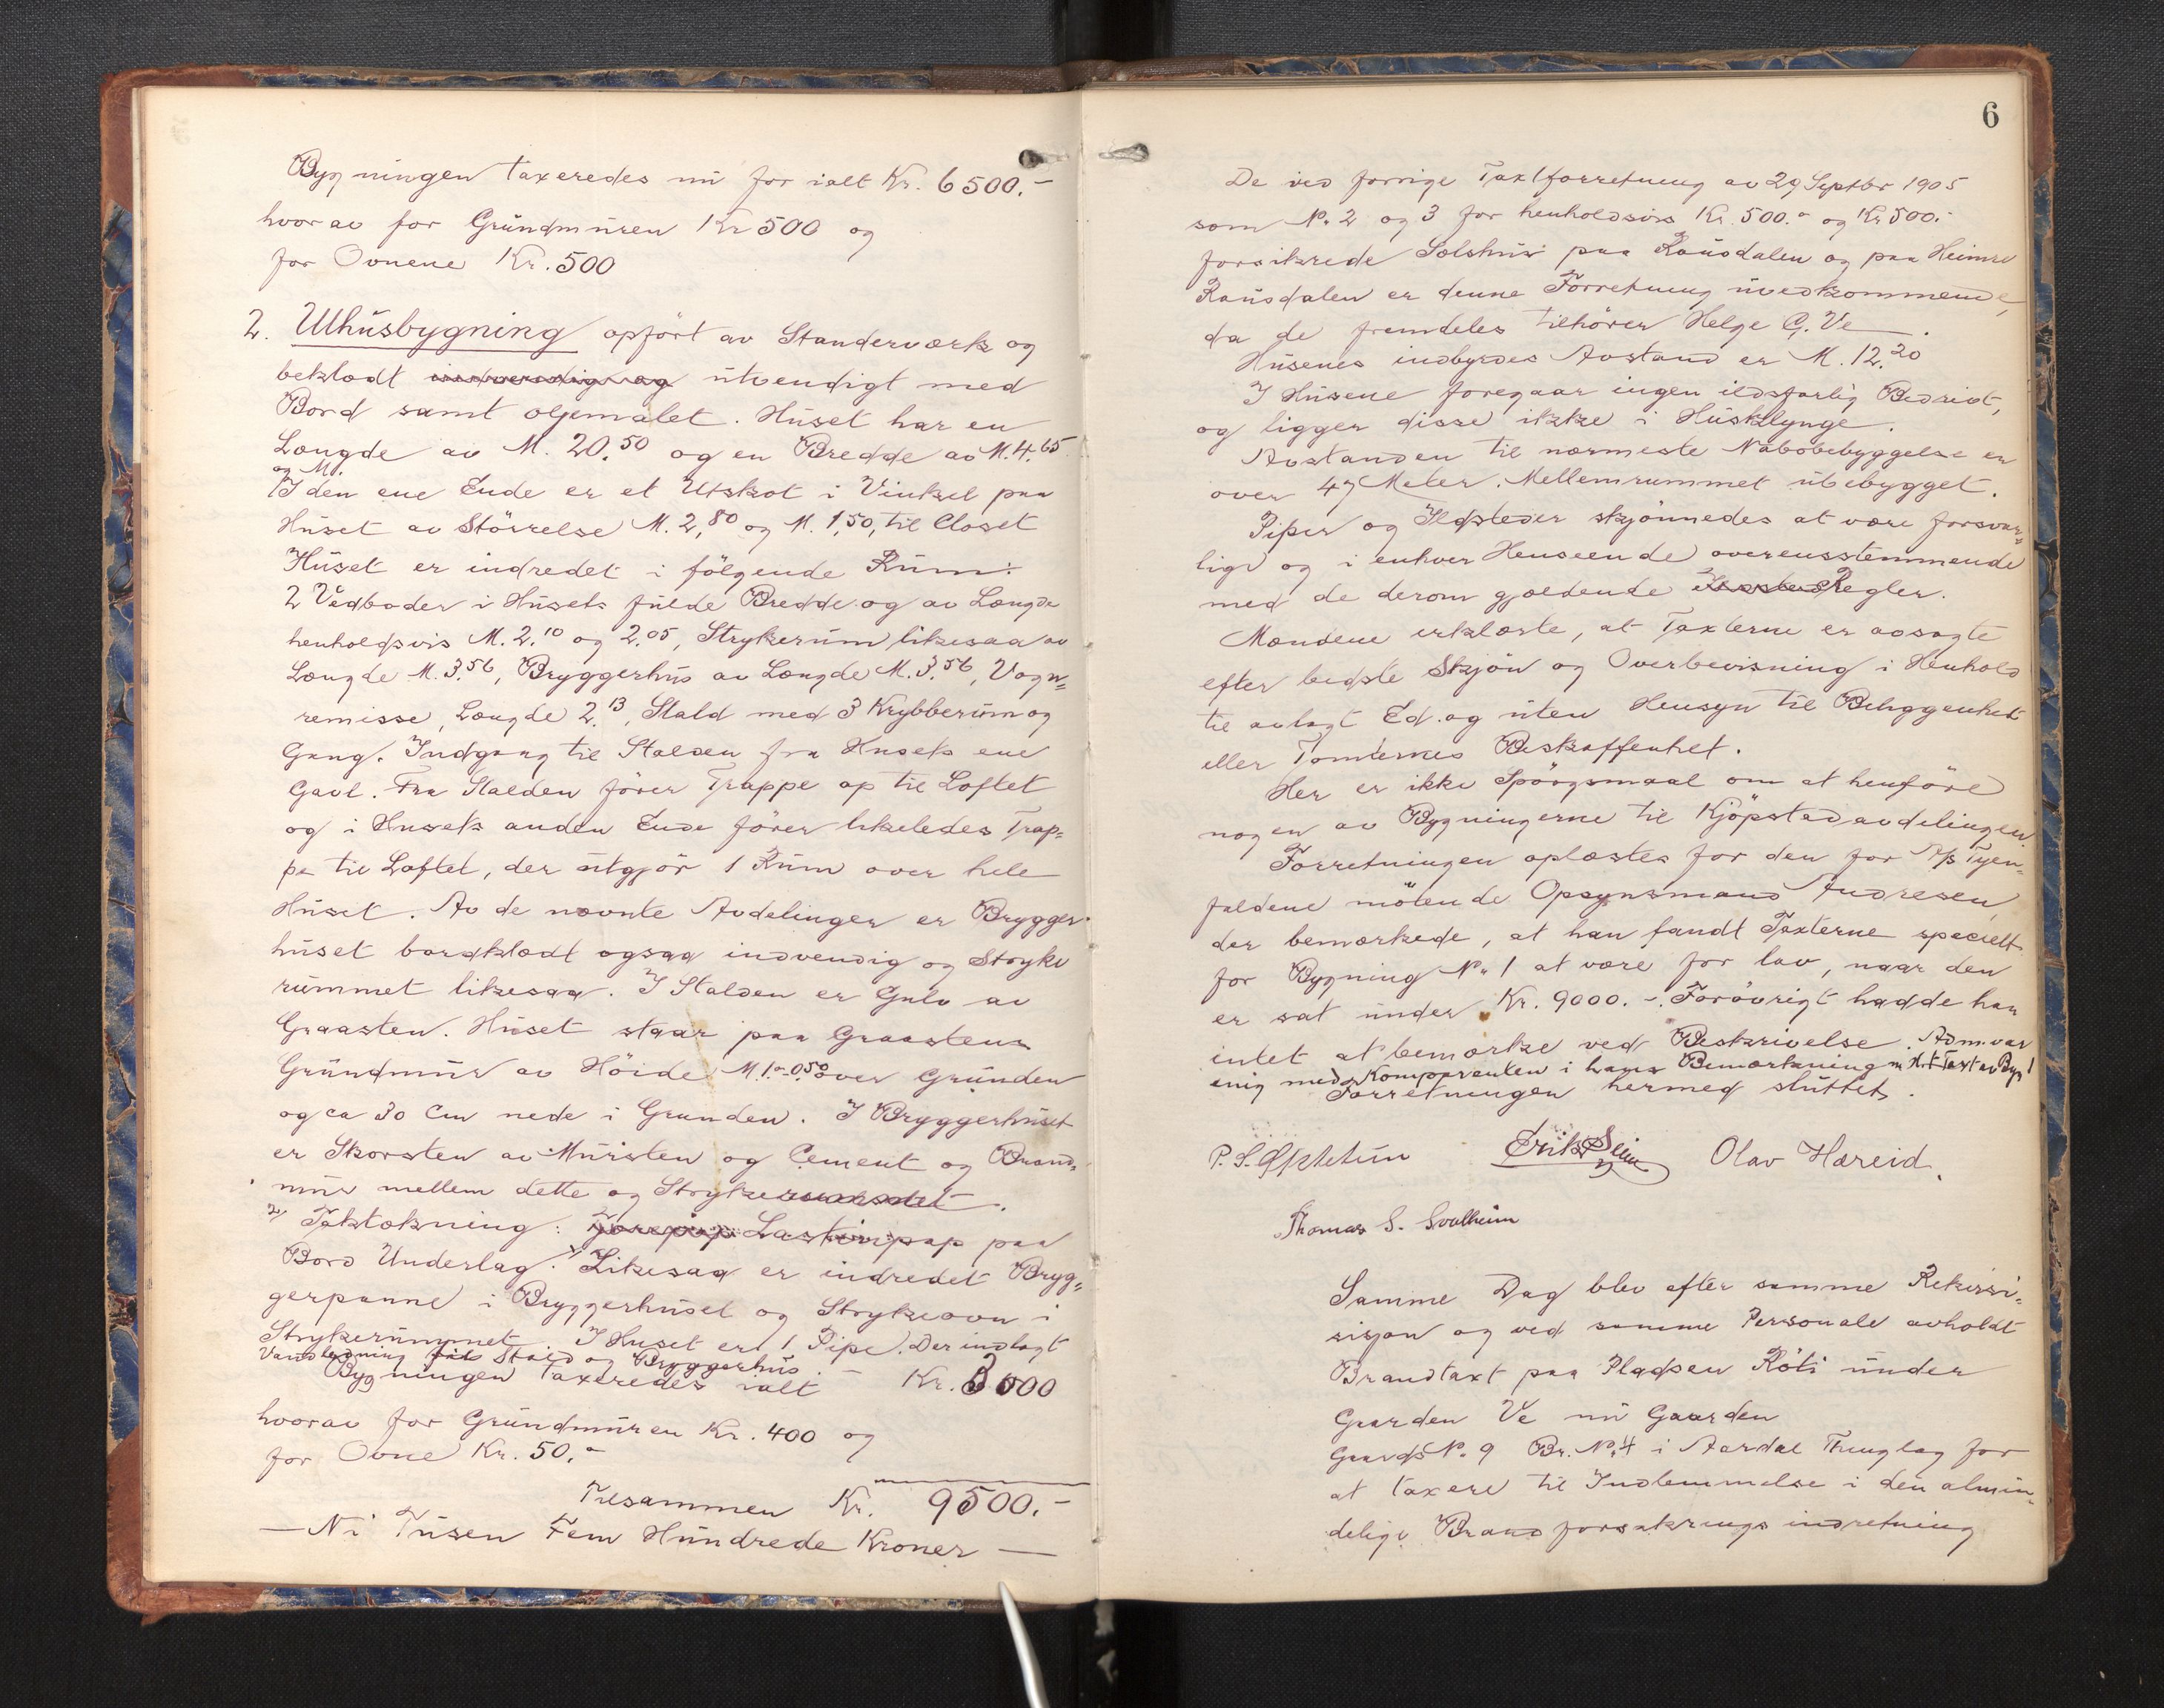 Bygningen taxeredes nu for ialt Kr. 6500.-
hvorav for Grundmuren Kr 500 og
for Ovnene Kr. 500
2. Uthusbygning opført av Standerværk og
beklædt indvendig og utvendigt med
Bord samt oljemalet. Huset har en
Længde av M. 20.50 og en Bredde av M. 4.65
og M.
I den ene Ende er et Utskot i Vinkel paa
Huset av Størrelse M. 2,80 og M. 1,50, til Closet
Huset er indredet i følgende Rum:
2 Vedboder i Husets fulde Bredde og av Længde
henholdsvis M. 2.10 og 2.05, Strykerum likesaa av
Længde M. 3.56, Bryggerhus av Længde M. 3.56, Vogn=
remisse, Længde 2.13, Stald med 3 Krybberum og
Gang. Indgang til Stalden fra Husets ene
Gavl. Fra Stalden fører Trappe op til Loftet
og i Husets anden Ende fører likeledes Trap=
pe til Loftet, der utgjør 1 Rum over hele
Huset. Av de nævnte Avdelinger er Brygger
huset bordklædt ogsaa indvendig og Stryke
rummet likesaa. I Stalden er Gulv av
Graasten. Huset staar paa Graastens
Grundmur av Høide M. 1.- 0.50 over Grunden
og ca 30 Cm nede i Grunden. I Bryggerhuset
er Skorsten av Mursten og Cement og Brand=
mur mellem dette og Strykerummet.
2) Taktækning: Lastinpap paa
Bord Underlag. 1) Likesaa er indredet Bryg=
gerpanne i Bryggerhuset og Strykeovn i
Strykerummet. I Huset er 1 Pipe. Der indlagt
Vandledning til Stald og Bryggerhus.
Bygningen taxeredes ialt - Kr. 3000
hvorav for Grundmuren Kr. 400 og
for Ovne Kr. 50.-
Tilsammen Kr. 9500.-
— Ni Tusen Fem Hundrede Kroner —
6
De ved forrige Taxtforretning av 29 Septbr 1905
som No 2 og 3 for henholdsvis Kr. 500.- og Kr 500.-
forsikrede Sælshus paa Rausdalen og paa Heimre
Rausdalen er denne Forretning uvedkommende,
da de fremdeles tilhører Helge G. Ve.
Husenes indbyrdes Avstand er M. 12.20
I Husene foregaar ingen ildsfarlig Bedrivt,
og ligger disse ikke i Husklynge.
Avstanden til nærmeste Nabobebyggelse er
over 47 Meter. Mellemrummet ubebygget.
Piper og Ildsteder skjønnedes at være forsvar=
lige og i enhver Henseende overensstemmende
med de derom gjældende Regler.
Mændene erklærte, at Taxterne er avsagte
efter bedste Skjøn og Overbevisning i Henhold
til avlagt Ed og uten Hensyn til Beliggenhet
eller Tomternes Beskaffenhet.
Her er ikke Spørgsmaal om at henføre
nogen av Bygningerne til Kjøpstadavdelingen.
Forretningen oplæstes for den for A/S Tyen=
faldene møtende Opsynsmand Andresen,
der bemærkede, at han fandt Taxterne specielt
for Bygning No 1 at være for lav, naar den
er sat under Kr. 9000.-. Forøvrigt hadde han
intet at bemærke ved Beskrivelse. Adm. var
enig med Komparenten i hans Bemærkning m. H. t. Taxt av Byg 1
Forretningen hermed sluttet.
P. S. Eldetun Erik Seim Olav Hæreid.
Thomas S. Svalheim
Samme Dag blev efter samme Rekvisi=
sisjon og ved samme Personale avholdt
Brandtaxt paa Pladsen Røti under
Gaarden Ve nu Gaarden
Gaards No. 9 Br. No. 4 i Aardal Thinglag for
at taxere til Indlemmelse i den almin=
delige Brandforsikrings indretning